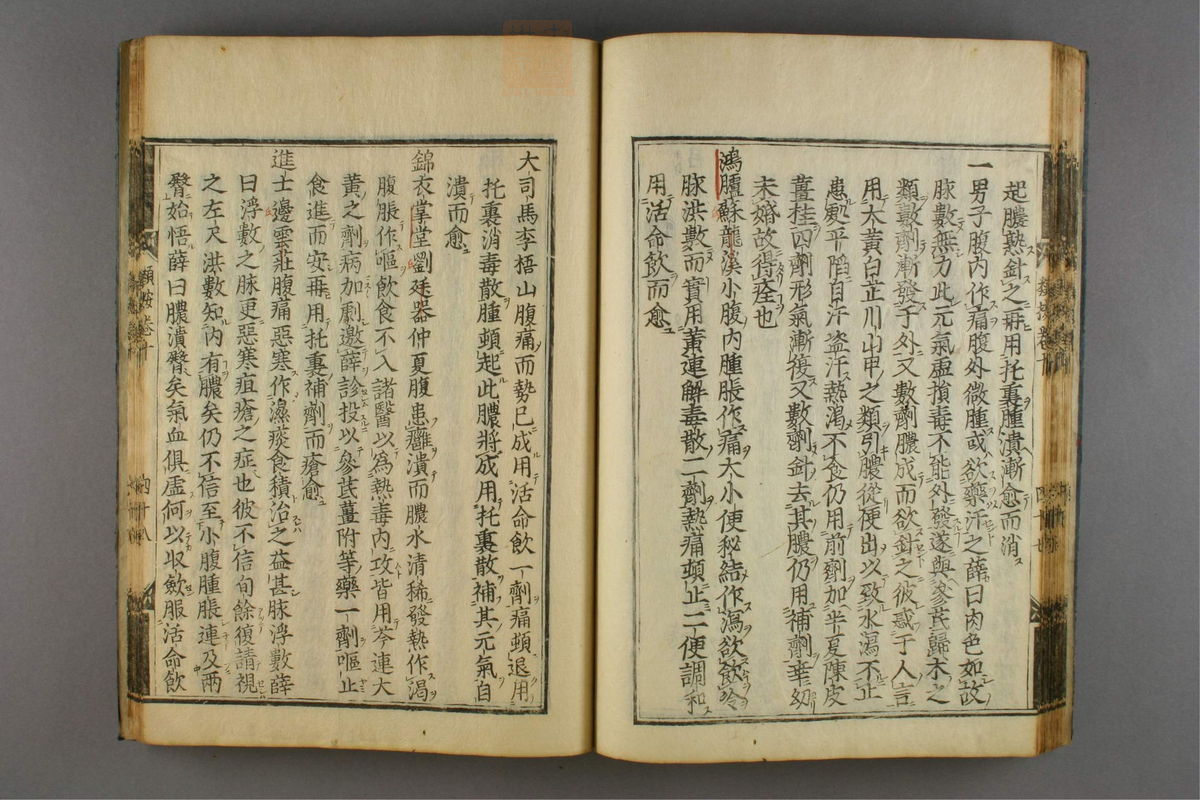 起膿熟針之再用托裏腫潰漸愈而消
一男子腹内作痛腹外微腫或欲藥汗之薛曰肉色如故
脉數無力此元氣虛損毒不能外發遂與參芪歸木之
類數劑漸發于外又數劑膿成而欲針之彼惑于人言
用大黄白芷川山甲之類引膿從便出以致水瀉不止
患處平陷自汗盗汗熱渴不食仍用前劑加半夏陳皮
薑桂四劑形氣漸復又數劑針去其膿仍用補劑幸幼
未婚故得痊也
鴻臚蘇龍溪小腹内腫脹作痛大小便秘結作瀉欲飲冷
脉洪數而實用黄連解毒散二劑熱痛頓止二便調和
用活命飲而愈
大司馬李梧山腹痛而勢已成用活命飲一劑痛頓退用
托裏消毒散腫頓起此膿將成用托裏散補其元氣自
潰而愈
錦衣掌堂劉廷器仲夏腹患癰潰而膿水清稀發熱作渴
腹脹作嘔飲食不入諸醫以爲熱毒内攻皆用芩連大
黄之劑病加劇邀薛診投以參芪薑附等藥一劑嘔止
食進而安再用托裏補劑而瘡愈
進士邊雲莊腹痛惡寒作濕痰食積治之益甚脉浮數薛
曰浮數之脉更惡寒疽瘡之症也彼不信旬餘復請視
之左尺洪數知内有膿矣仍不信至小腹腫脹連及兩
臀始悟薛曰膿潰臀矣氣血俱虛何以收斂服活命飲
類按卷十
四十八